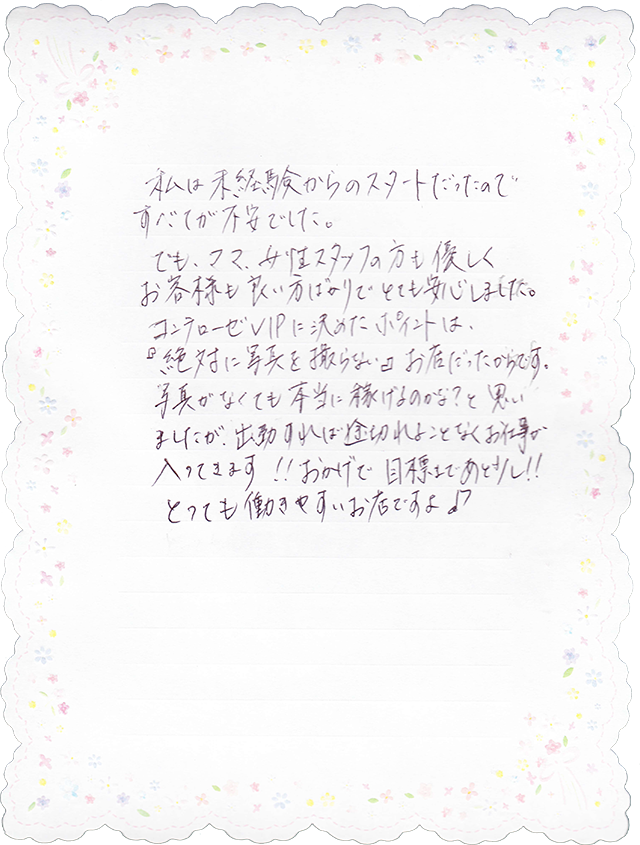 私は未経験からのスタートだったので
すべてが不安でした。
でも、ママ、女性スタッフの方も優しく
お客様も良い方ばかりでとても安心しました。
コンテローゼVIPに決めたポイントは、
『絶対に写真を撮らない』お店だったからです。
写真がなくても本当に稼げるのかな?と思い
ましたが、出勤すれば途切れることなくお仕事が
入ってきます!!おかげで目標まであと少し!!
とっても働きやすいお店ですよ♪